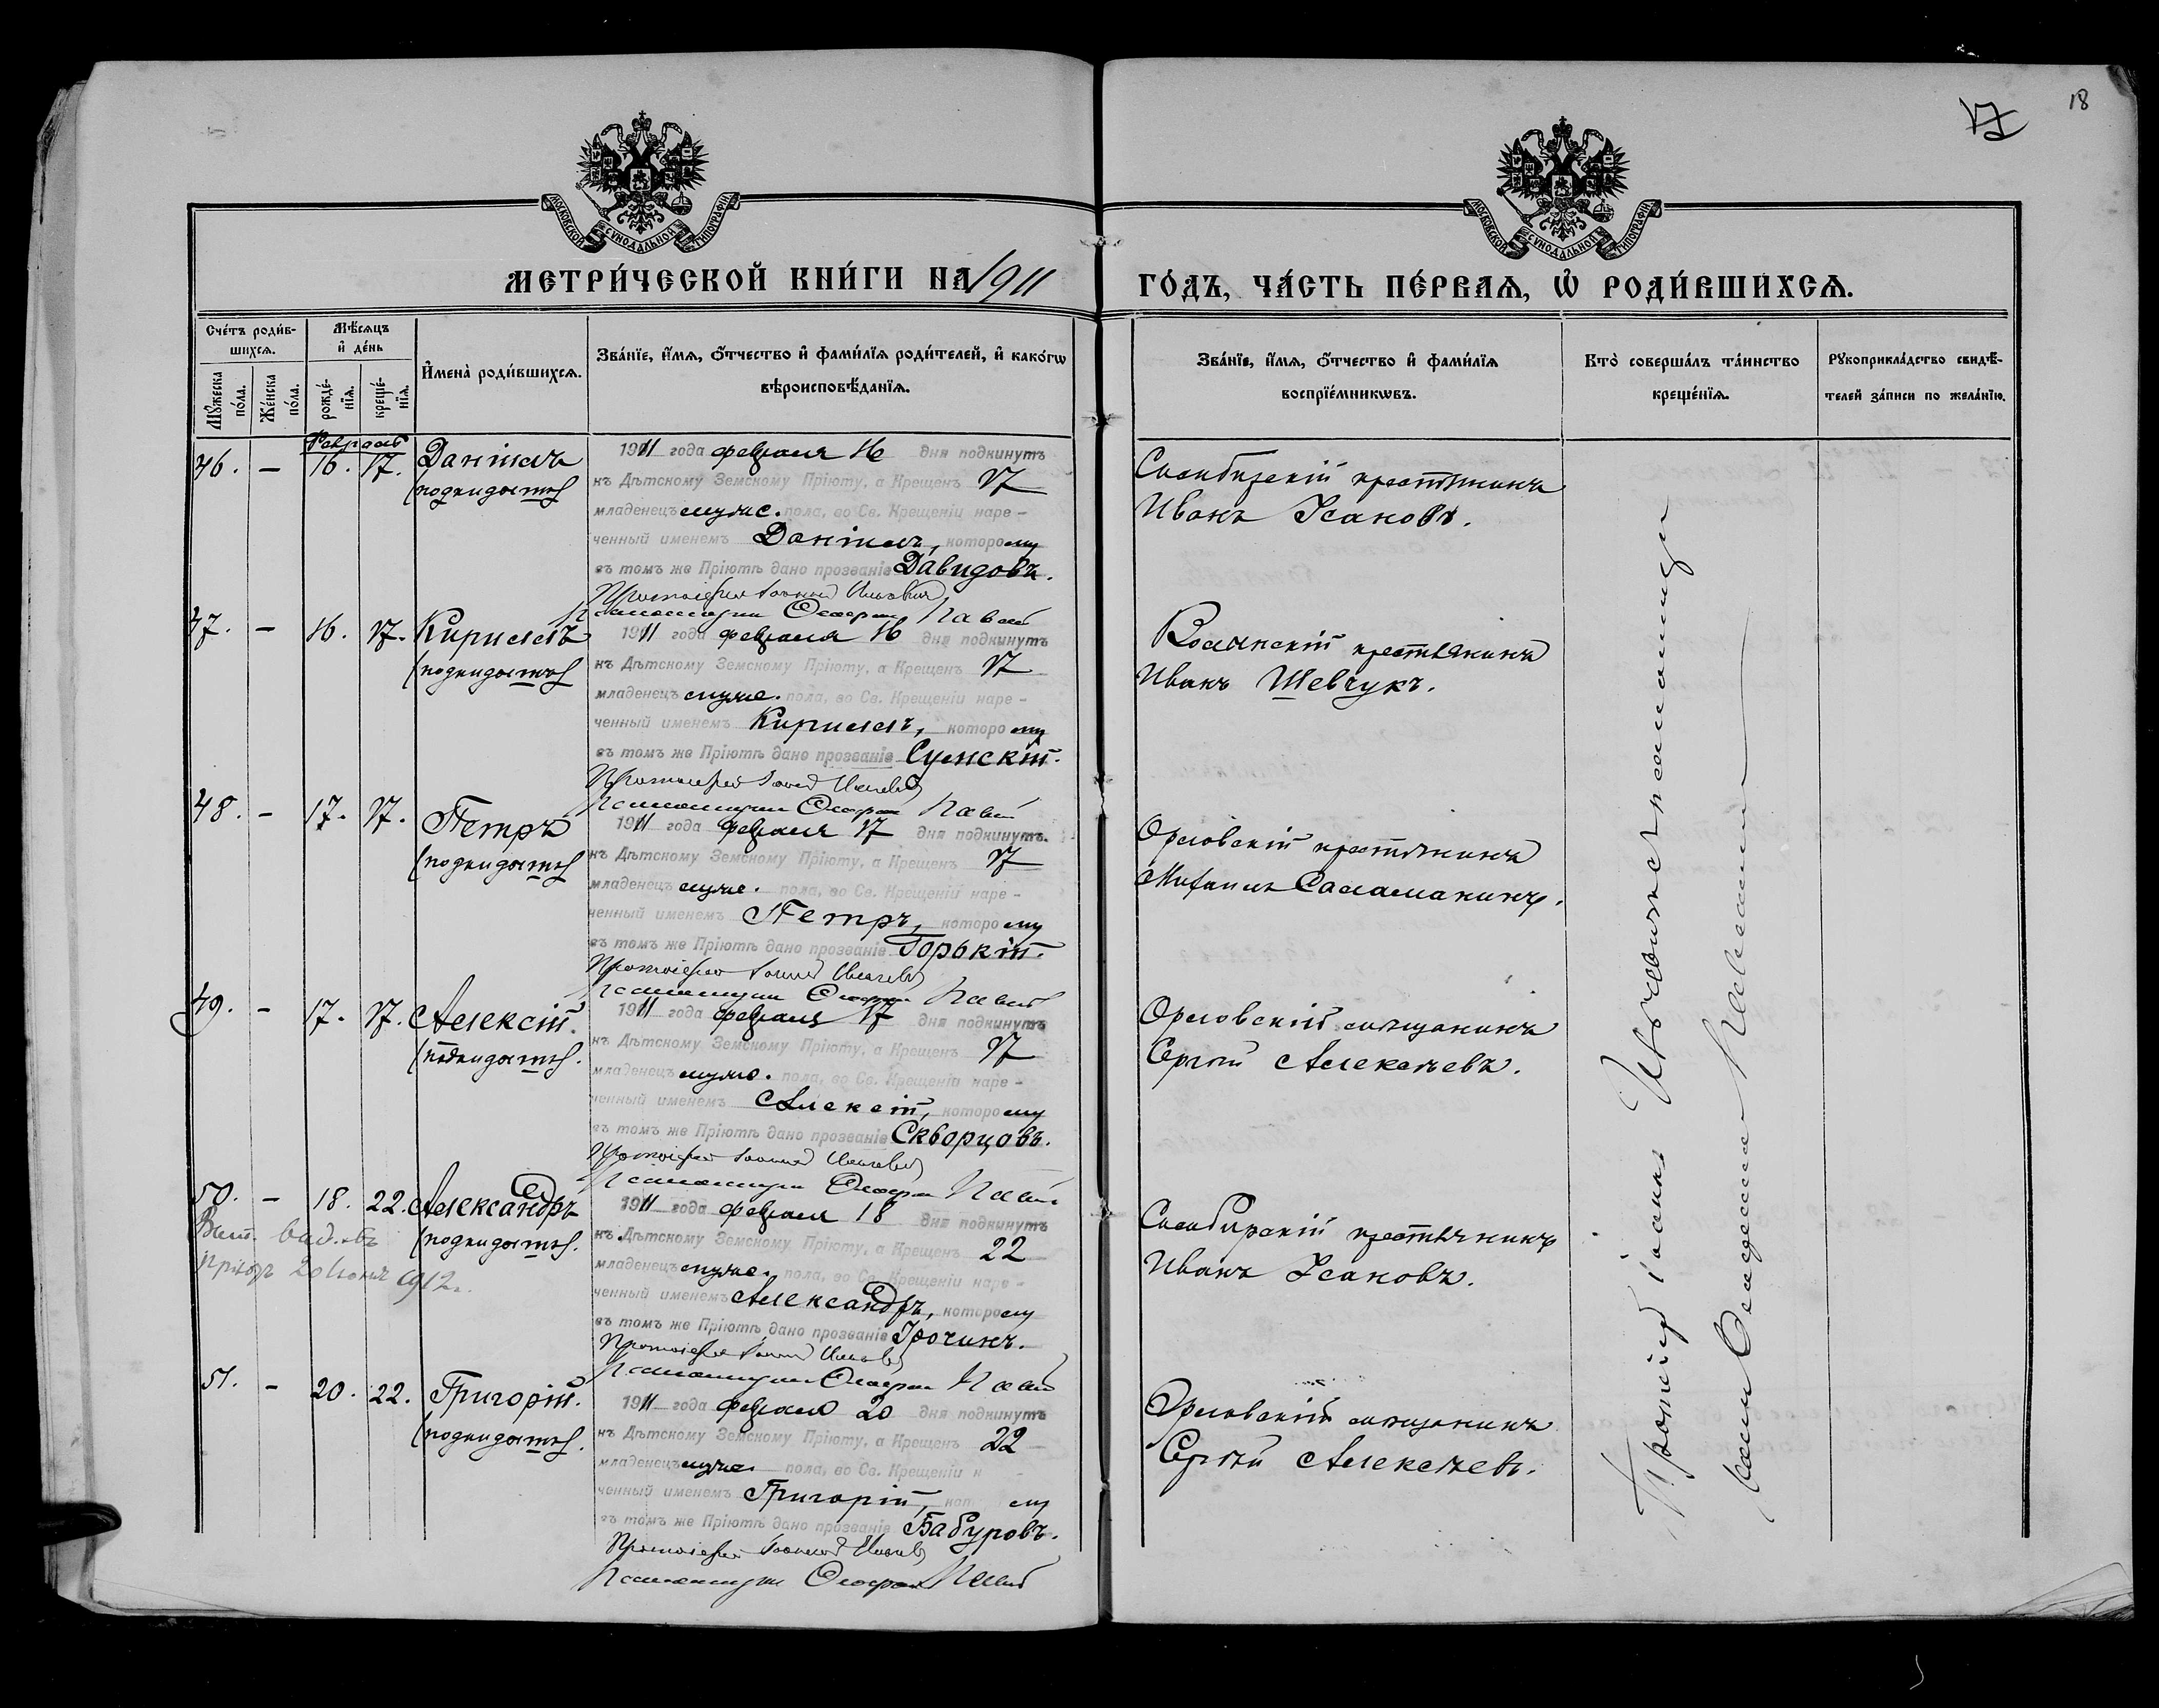 17
18
МОСКОВСКОЙ СУНОДАЛЬНОЙ ТИПОГРАФІИ
МОСКОВСКОЙ СУНОДАЛЬНОЙ ТИПОГРАФІИ
МЕТРИ́ЧЕСКОЙ КНИ́ГИ НА 1911
ГО́ДЪ, ЧА́СТЬ ПЕ́РВАѦ, Ѡ҆ РОДИ́ВШИХСѦ.
Сче́тъ роди́в-
шихсѧ.
Мѣ́сѧцъ
и҆ де́нь
Мꙋ́жеска
по́ла.
Же́нска
по́ла.
рожде́-
нїѧ.
креще́-
нїѧ.
И҆мена̀ роди́вшихсѧ.
Зва́нїе, и҆́мѧ, ѻ҆́тчество и҆ фами́лїѧ роди́телей, и҆ како́гѡ
вѣроисповѣ́данїѧ.
Зва́нїе, и҆́мѧ, ѻ҆́тчество и҆ фами́лїѧ
воспрїе́мникѡвъ.
Кто̀ соверша́лъ та́инство
креще́нїѧ.
Рꙋкоприкла́дство свидѣ́-
телей за́писи по жела́нїю.
Февраль
46. – 16. 17. Даніилъ
(подкидышъ)
1911 года февраля 16 дня подкинутъ
къ Дѣтскому Земскому Пріюту, а Крещенъ 17
младенецъ муже. пола, во Св. Крещеніи наре-
ченный именемъ Даніилъ, которому
въ томъ же Пріютѣ дано прозваніе Давидовъ.
Протоіерей Іоаннъ
Симбирскій крестьянинъ
Иванъ Усановъ.
47. – 16. 17. Кириллъ
(подкидышъ)
1911 года февраля 16 дня подкинутъ
къ Дѣтскому Земскому Пріюту, а Крещенъ 17
младенецъ муже. пола, во Св. Крещеніи наре-
ченный именемъ Кириллъ, которому
въ томъ же Пріютѣ дано прозваніе Сумскій.
Протоіерей Іоаннъ
Волынскій крестьянинъ
Иванъ Шевчукъ.
48. – 17. 17. Петръ
(подкидышъ)
1911 года февраля 17 дня подкинутъ
къ Дѣтскому Земскому Пріюту, а Крещенъ 17
младенецъ муже. пола, во Св. Крещеніи наре-
ченный именемъ Петръ, которому
въ томъ же Пріютѣ дано прозваніе Горькій.
Протоіерей Іоаннъ
Орловскій крестьянинъ
Михаилъ Саламакинъ.
49. – 17. 17. Алексій.
(подкидышъ).
1911 года февраля 17 дня подкинутъ
къ Дѣтскому Земскому Пріюту, а Крещенъ 17
младенецъ муже. пола, во Св. Крещеніи наре-
ченный именемъ Алексій, которому
въ томъ же Пріютѣ дано прозваніе Скворцовъ.
Протоіерей Іоаннъ
Орловскій мѣщанинъ
Сергѣй Алексѣевъ.
50. – 18. 22. Александръ
(подкидышъ).
20 1912г.
1911 года февраля 18 дня подкинутъ
къ Дѣтскому Земскому Пріюту, а Крещенъ 22
младенецъ муже. пола, во Св. Крещеніи наре-
ченный именемъ Александръ, которому
въ томъ же Пріютѣ дано прозваніе
Протоіерей Іоаннъ
Симбирскій крестьянинъ
Иванъ Усановъ.
51. – 20. 22. Григорій.
(подкидышъ).
1911 года февраля 20 дня подкинутъ
къ Дѣтскому Земскому Пріюту, а Крещенъ 22
младенецъ муже. пола, во Св. Крещеніи
ченный именемъ Григорій, которому
въ томъ же Пріютѣ дано прозваніе Бабуровъ.
Протоіерей Іоаннъ
Орловскій мѣщанинъ
Сергѣй Алексѣевъ.
Протоіерей Іоаннъ